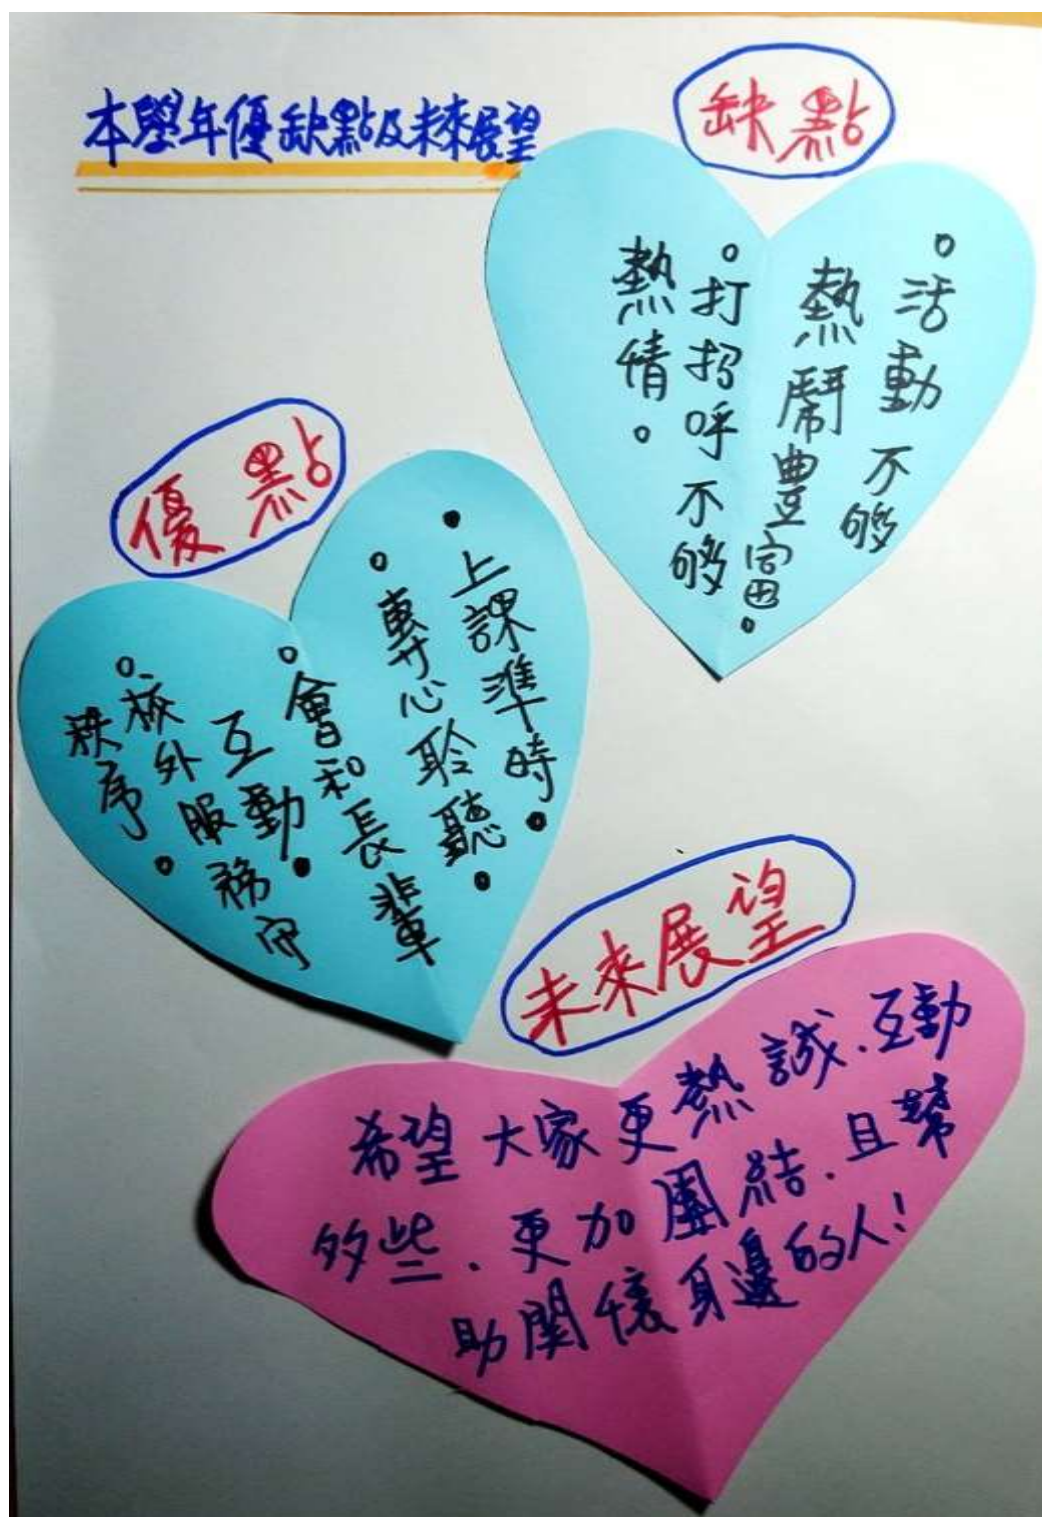 本學年優缺點及未來展望
缺點
。活動不够
熱鬧豊富。
。打招呼不够
熱情。
優點
。上課準時。
。專心聆聽。
。會和長輩
互動。
。校外服務守
秩序。
未來展望
希望大家更熱誠、互動
多些、更加團結、且幫
助關懷身邊的人!